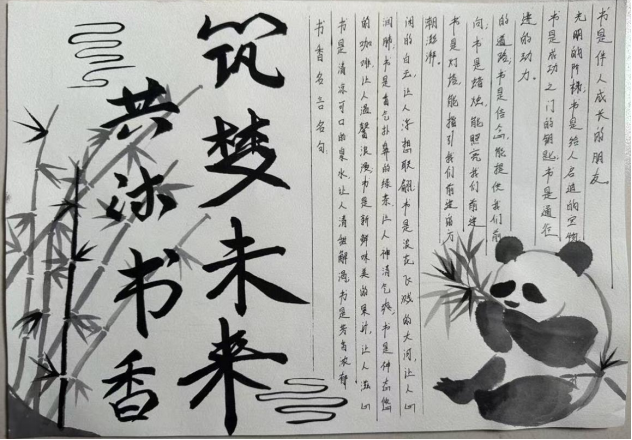 共沐书香
筑梦未来
书香名言名句
书是清凉可口的泉水让人清解渴,书是芳香浓郁
的咖啡,让人温馨浪漫,书是新鲜味美的果汁,让人滋心
润肺,书是香气扑鼻的绿茶让人神清气爽,书是神态悠
闲的白云,让人浮想联翩书是浪花飞溅的大河,让人心
潮澎湃。
书是灯塔,能指引我们前进的方
向,书是蜡烛,能照亮我们前进
的道路,书是信念,能提供我们前
进的动力。
书是成功之门的钥匙,书是通往
光明的阶梯,书是给人启迪的宝物
书是伴人成长的朋友